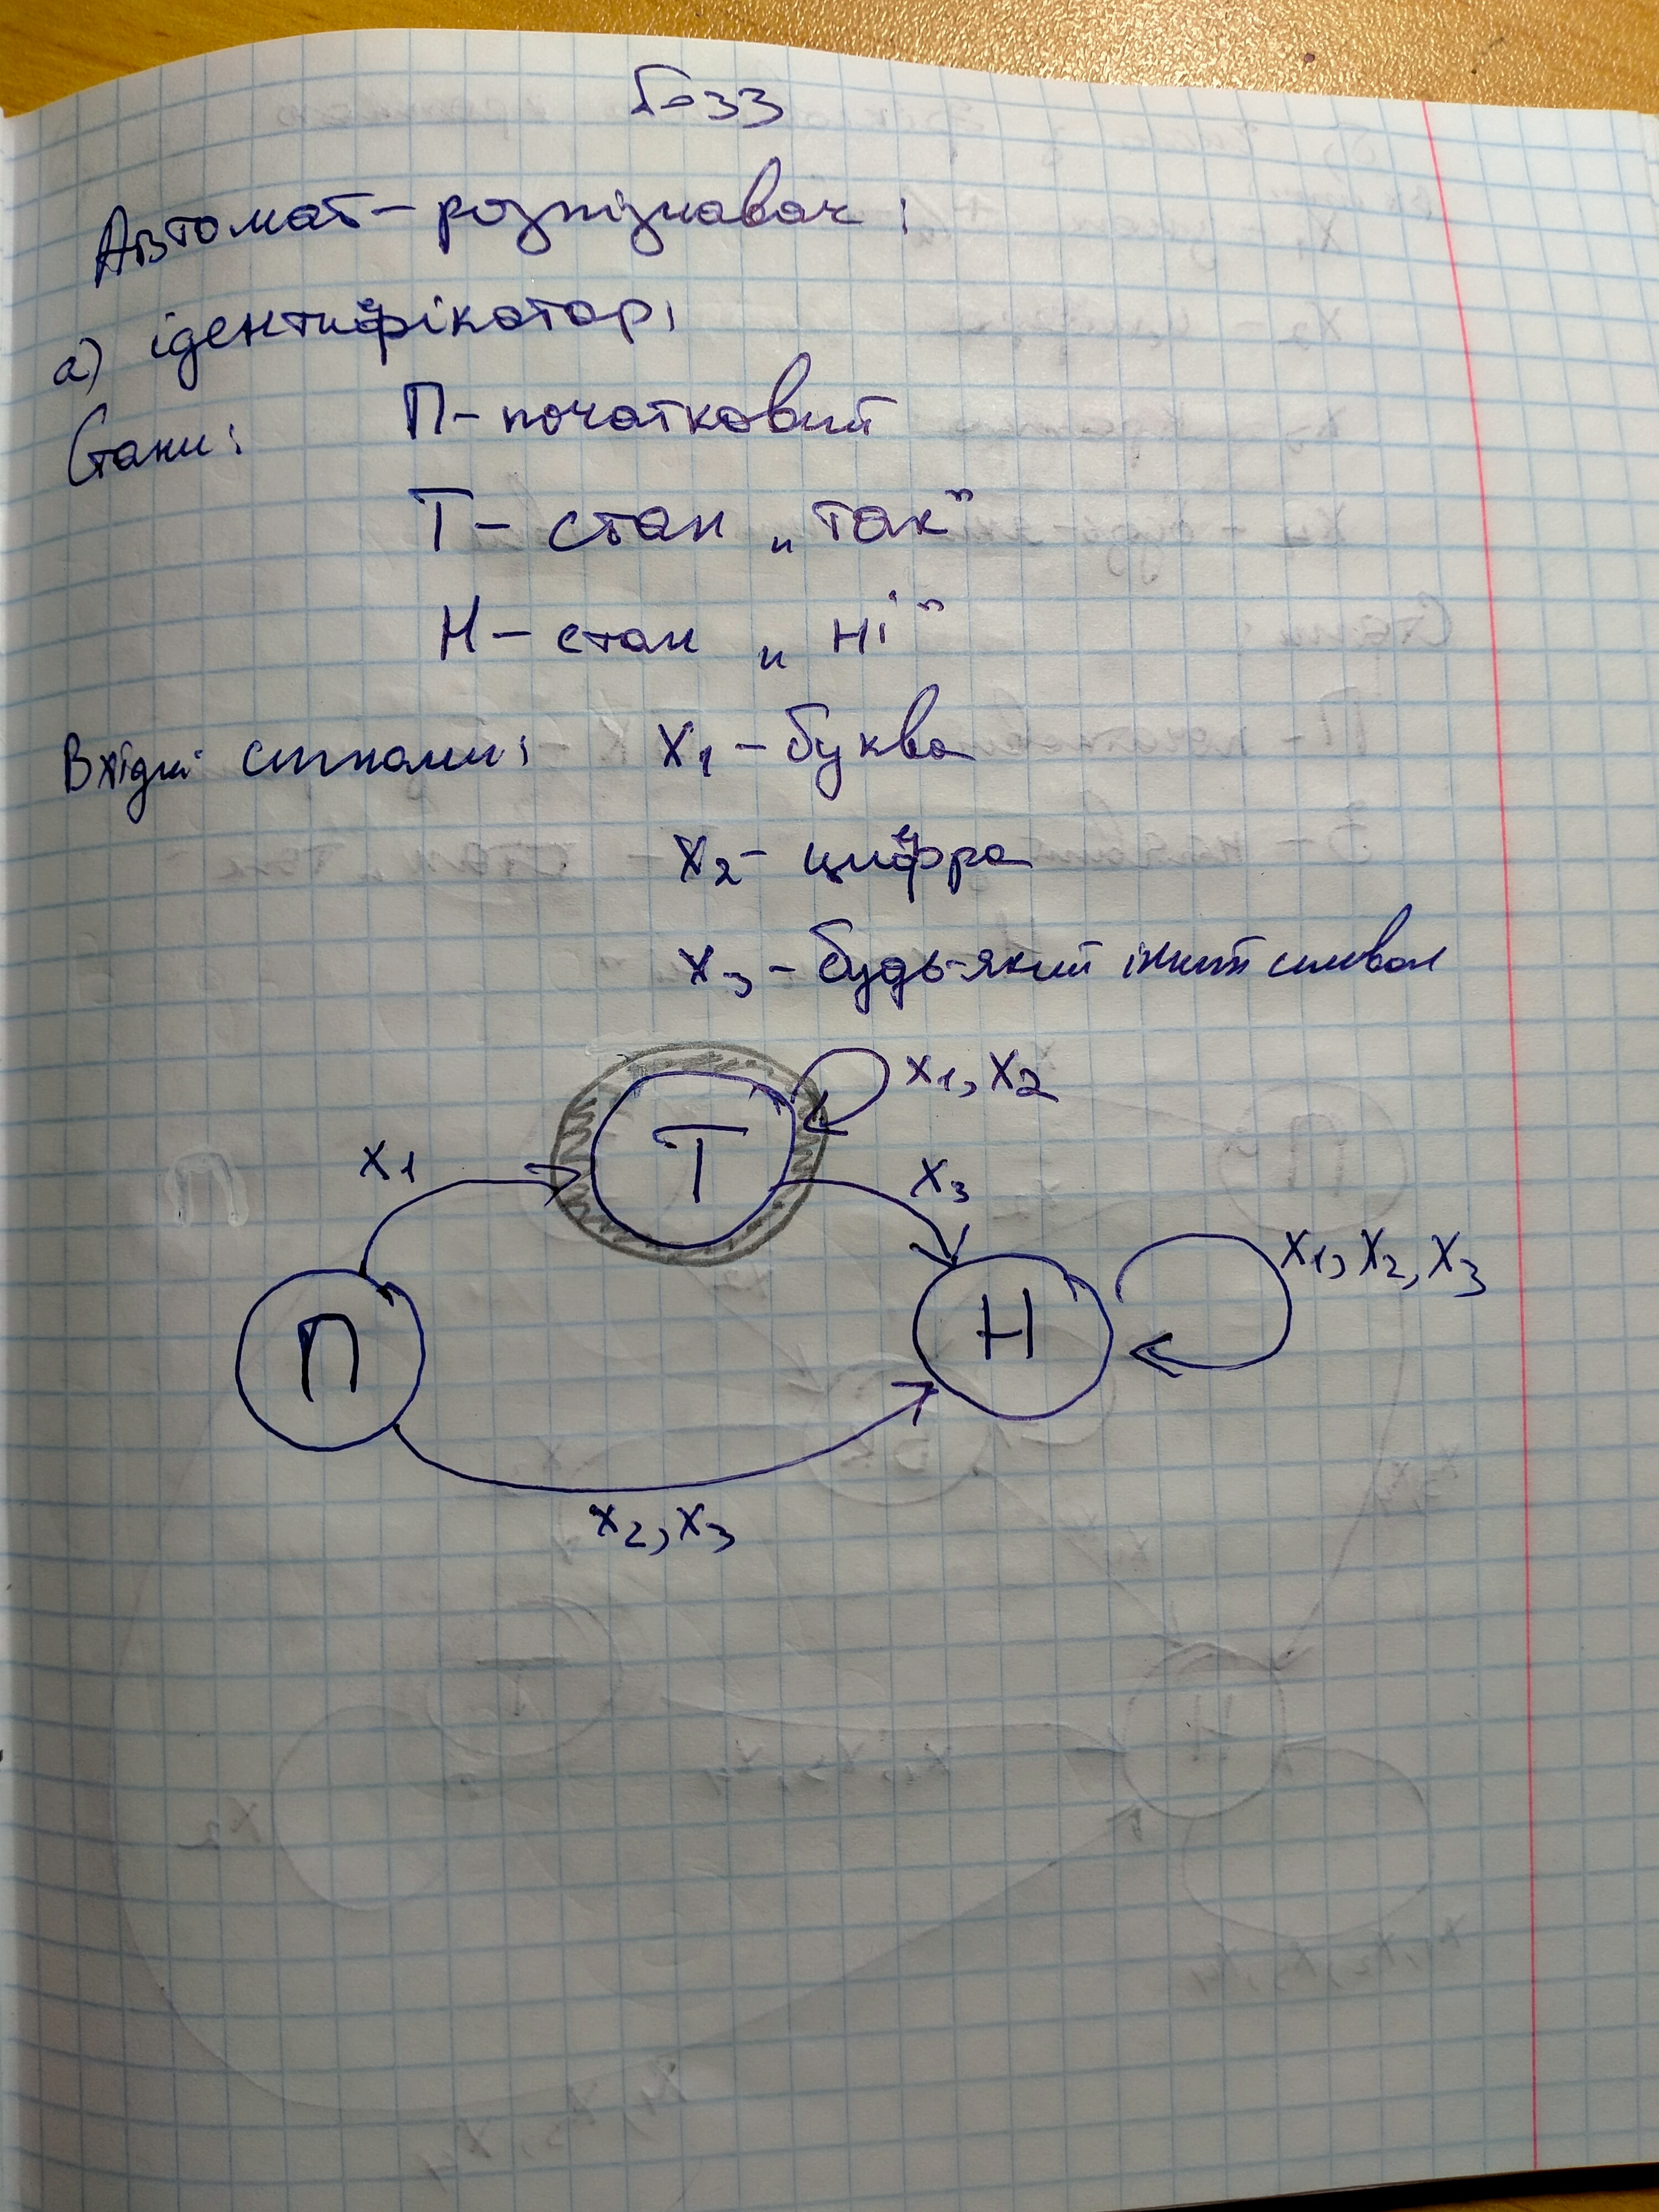 Г-33
Автомат-розпізнавач:
а) ідентифікатор,
Стани: П - початковий
Т - стан „так"
Н - стан „ні"
Вхідні сигнали: x1 - буква
x2 - цифра
x3 - будь-який інший символ
T
x1, x2
x1
x3
П
Н
x1, x2, x3
x2, x3